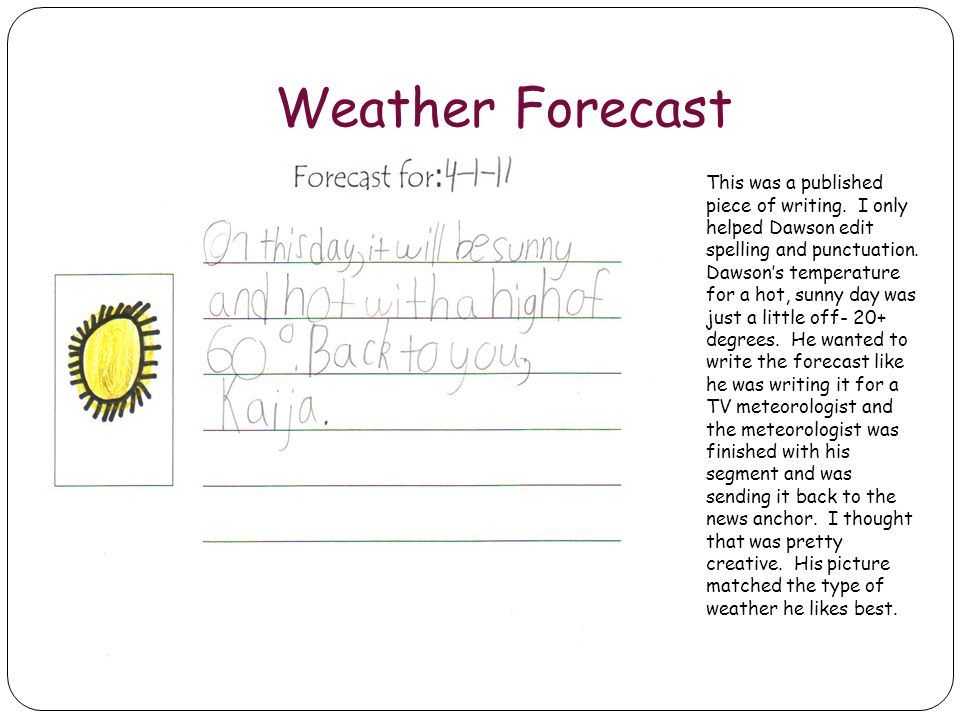 Weather Forecast
Forecast for: 4-1-11
On this day, it will be sunny
and hot with a high of
60°. Back to you,
Kaija.
This was a published
piece of writing.  I only
helped Dawson edit
spelling and punctuation.
Dawson's temperature
for a hot, sunny day was
just a little off- 20+
degrees.  He wanted to
write the forecast like
he was writing it for a
TV meteorologist and
the meteorologist was
finished with his
segment and was
sending it back to the
news anchor.  I thought
that was pretty
creative.  His picture
matched the type of
weather he likes best.